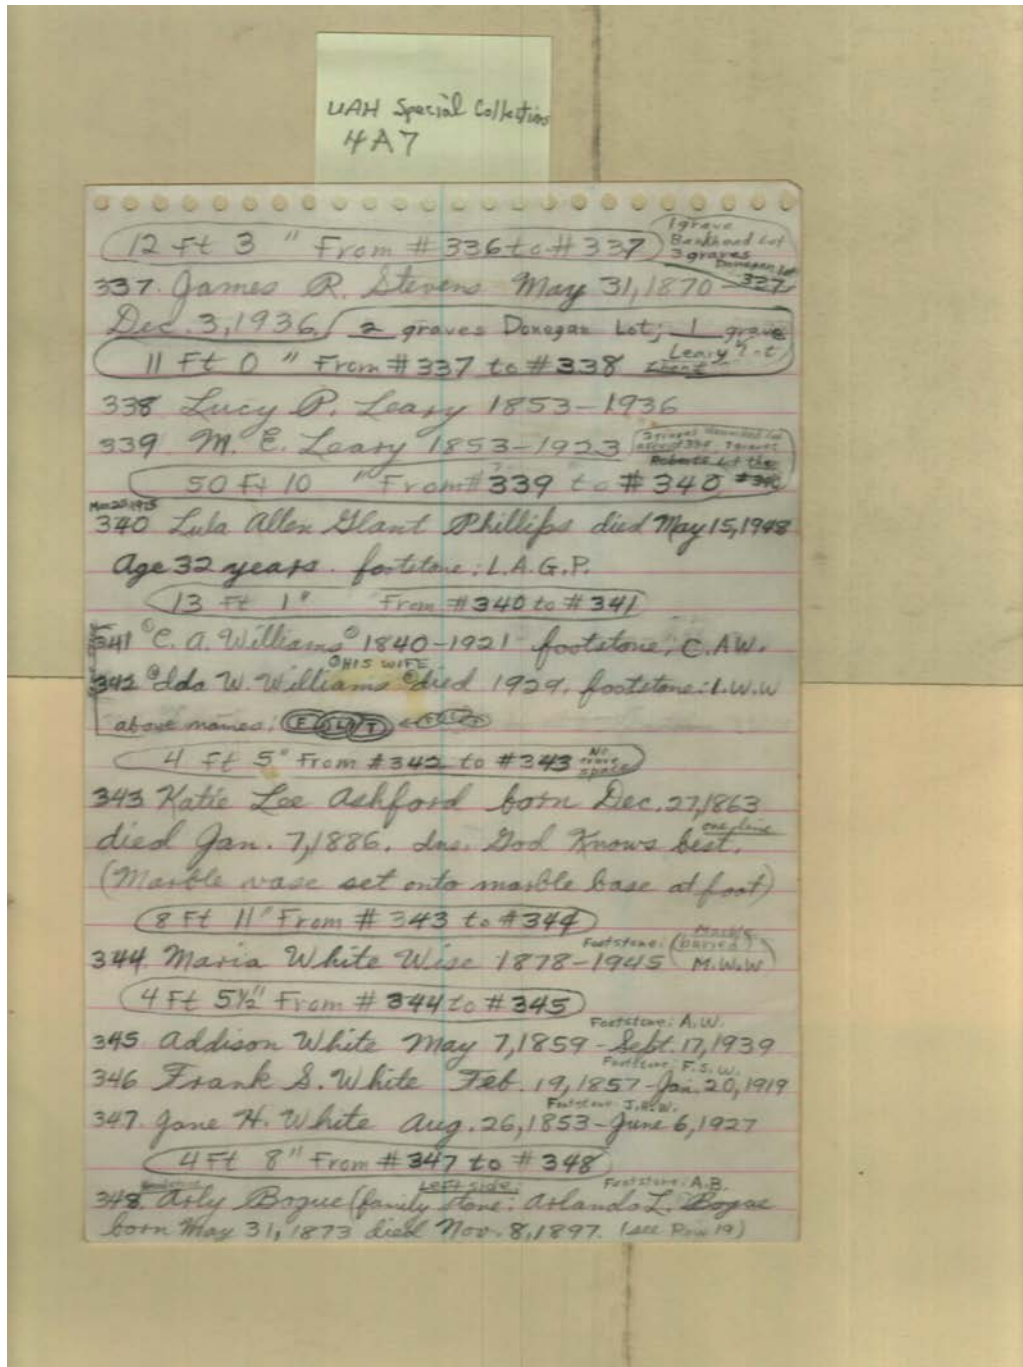 UAH Special Collections
4A7
12 Ft 3 " From # 336 to # 337
1 grave
Bankhead Lot
3 graves
Donegan Lot
337
337. James R. Stevens May 31, 1870 -
Dec. 3, 1936. 2 graves Donegan Lot; 1 grave
Leary
11 Ft 0 " From # 337 to # 338
338 Lucy P. Leary 1853-1936
339 M. E. Leary 1853-1923
50 Ft 10 " From # 339 to # 340
340 Lula Allen Glant Phillips died May 15, 1948
Age 32 years. footstone: L.A.G.P.
13 Ft 1" From # 340 to # 341
341 C. A. Williams 1840-1921 footstone; C.A.W.
HIS WIFE
342 Ida W. Williams died 1929. footstone: I.W.W
above names: F L T
4 Ft 5" From # 342 to # 343 No grave space
343 Katie Lee Ashford born Dec. 27, 1863
one line
died Jan. 7, 1886. Ins. God Knows best.
(Marble vase set onto marble base at foot)
8 Ft 11" From # 343 to # 344
Footstone: (Marble buried) M.W.W
344. Maria White Wise 1878-1945
4 Ft 5½" From # 344 to # 345
Footstone: A.W.
345. Addison White May 7, 1859 - Sept. 17, 1939
Footstone: F.S.W.
346 Frank S. White Feb. 19, 1857 - Jan. 20, 1919
Footstone: J.H.W.
347. Jane H. White Aug. 26, 1853 - June 6, 1927
4 Ft 8" From # 347 to # 348
Left side: Footstone: A.B.
348. Arly Bogue (family stone: Arlando L. Bogue
born May 31, 1873 died Nov. 8, 1897. (see Row 19)